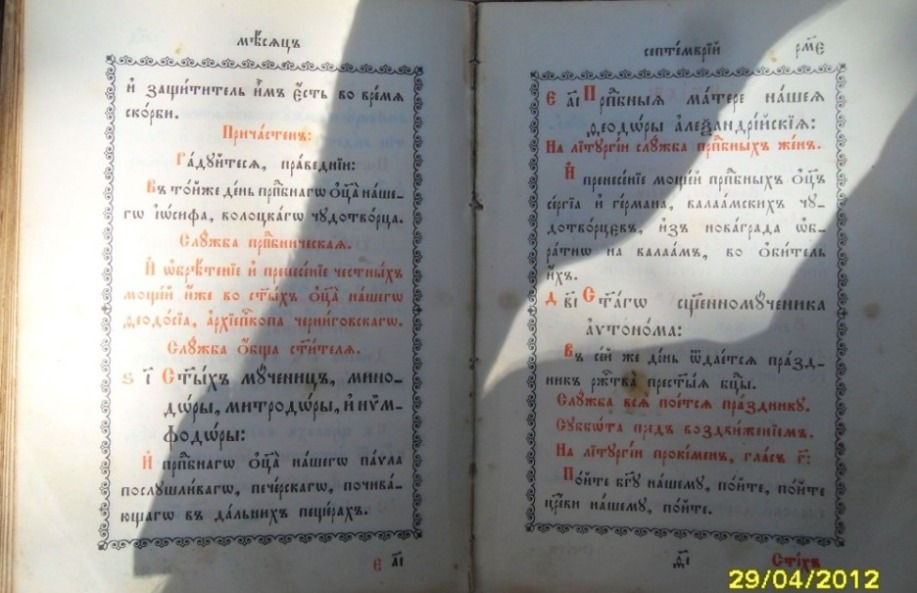 мѣ́сѧцъ
и҆ защи́титель и҆̀мъ є҆́сть во вре́мѧ
ско́рби.
Прича́стенъ:
Ра́дуйтесѧ, пра́веднїи:
Въ то́йже де́нь прпⷣбнагѡ ѻ҆ц҃а̀ на́ше-
гѡ і҆ѡ́сифа, волоцка́гѡ чꙋдотво́рца.
Слꙋ́жба прпⷣбническая.
И҆ ѡ҆брѣ́тенїе и҆ пренесе́нїе честны́хъ
моще́й и҆́же во ст҃ы́хъ ѻ҆ц҃а̀ на́шегѡ
ѳеодо́сїа, а҆рхїепⷭ҇копа черни́говскагѡ.
Слꙋ́жба ѻ҆́бща ст҃и́телѧ.
ѕ҃ і҃ Ст҃ы́хъ мꙋ́ченицъ, мино-
дѡ́ры, митродѡ́ры, и҆ нѷм-
фодѡ́ры:
И҆ прпⷣбнагѡ ѻ҆ц҃а̀ на́шегѡ па́ѵла
послꙋшли́вагѡ, пече́рскагѡ, почива́-
ющагѡ въ да́льнихъ пеще́рахъ.
є҃ а҃і
септе́мврїй рм҃є
Є҃ а҃і Прпⷣбныѧ ма́тере на́шеѧ
ѳеодѡ́ры а҆леѯандрі́йскїѧ:
На лїтꙋргі́и слꙋ́жба прпⷣбныхъ же́нъ.
И҆ пренесе́нїе моще́й прпⷣбныхъ ѻ҆ц҃ъ
се́ргїа и҆ ге́рмана, валаа́мскихъ чꙋ-
дотво́рцевъ, и҆зъ нова́града ѡ҆б-
ра́тнѡ на валаа́мъ, во ѻ҆би́тель
и҆́хъ.
Д҃ в҃і Ст҃а́гѡ сщ҃енномꙋ́ченика
а҆ѵтоно́ма:
Въ се́й же де́нь ѿдае́тсѧ пра́зд-
никъ ржⷭ҇тва̀ прест҃ы́ѧ бц҃ы.
Слꙋ́жба всѧ̀ пое́тсѧ пра́здникꙋ.
Сꙋббѡ́та предъ воздви́женїемъ.
На лїтꙋргі́и прокі́менъ, гла́съ г҃:
По́йте бг҃ꙋ на́шемꙋ, по́йте, по́йте
цр҃еви на́шемꙋ, по́йте.
Сті́хъ
29/04/2012